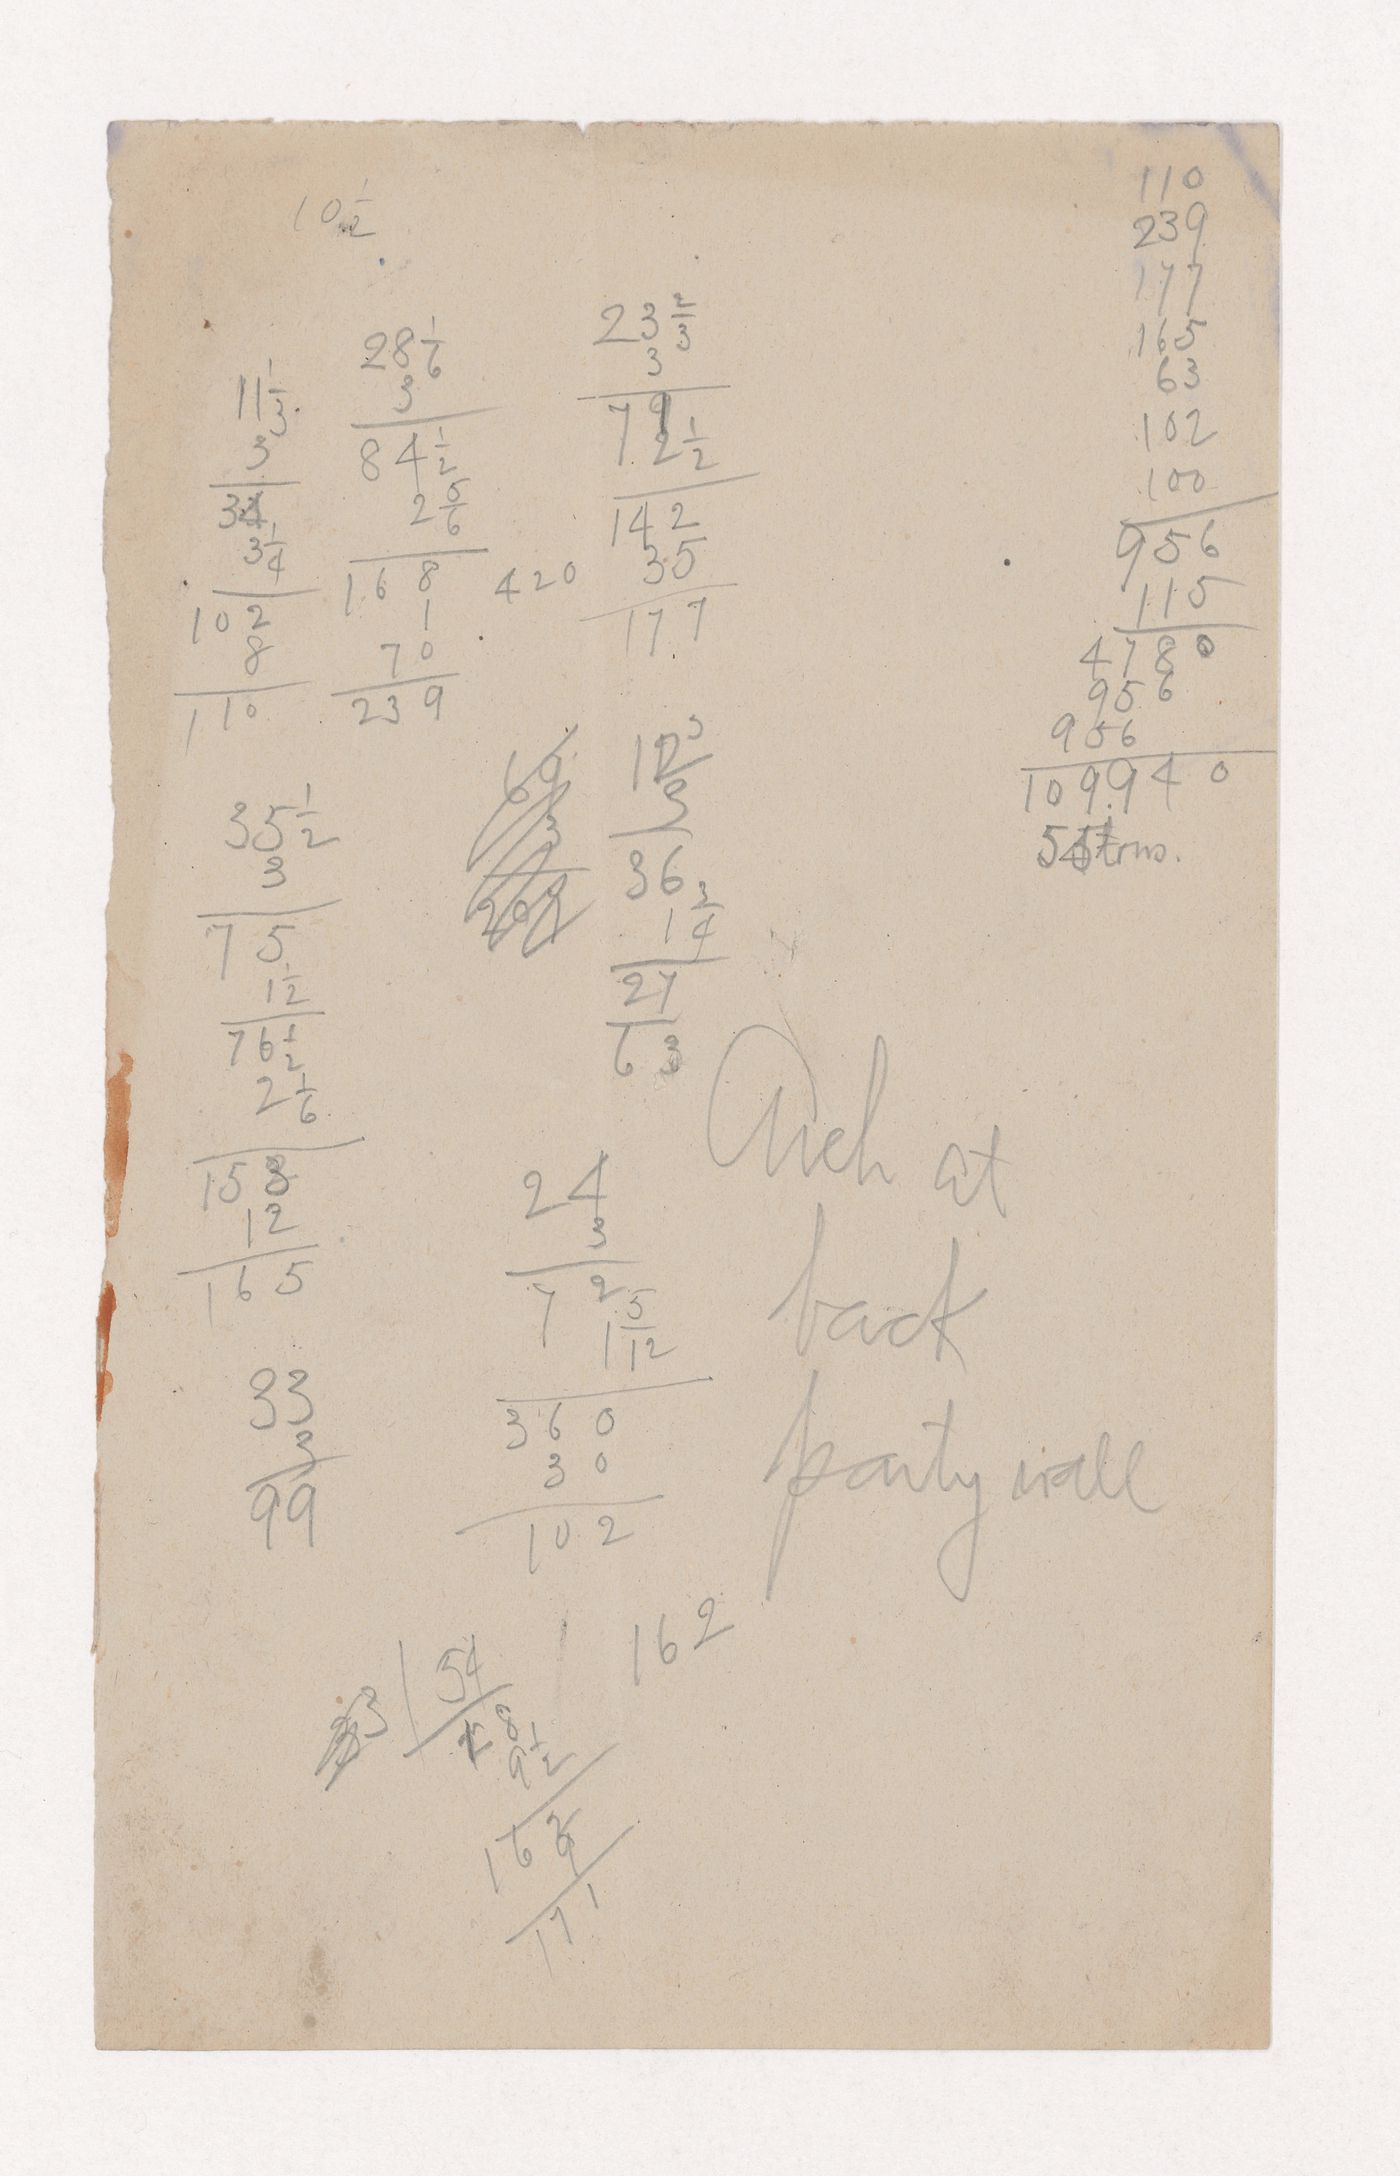 10 1/2
11 1/3
3
34
3 1/4
102
8
110
28 1/6
3
84 1/2
2 5/6
168
1
70
239
420
23 2/3
3
71
2 1/2
142
35
177
110
239
177
165
63
102
100
956
115
4780
956
956
109940
tons.
35 1/2
3
75
1 1/2
76 1/2
2 1/6
153
12
165
33
3
99
69
3
207
12
3
36
1 3/4
27
63
24
3
72
1 5/12
360
30
102
Arch at
back
party wall
162
3
54
18
9 1/2
162
9
171